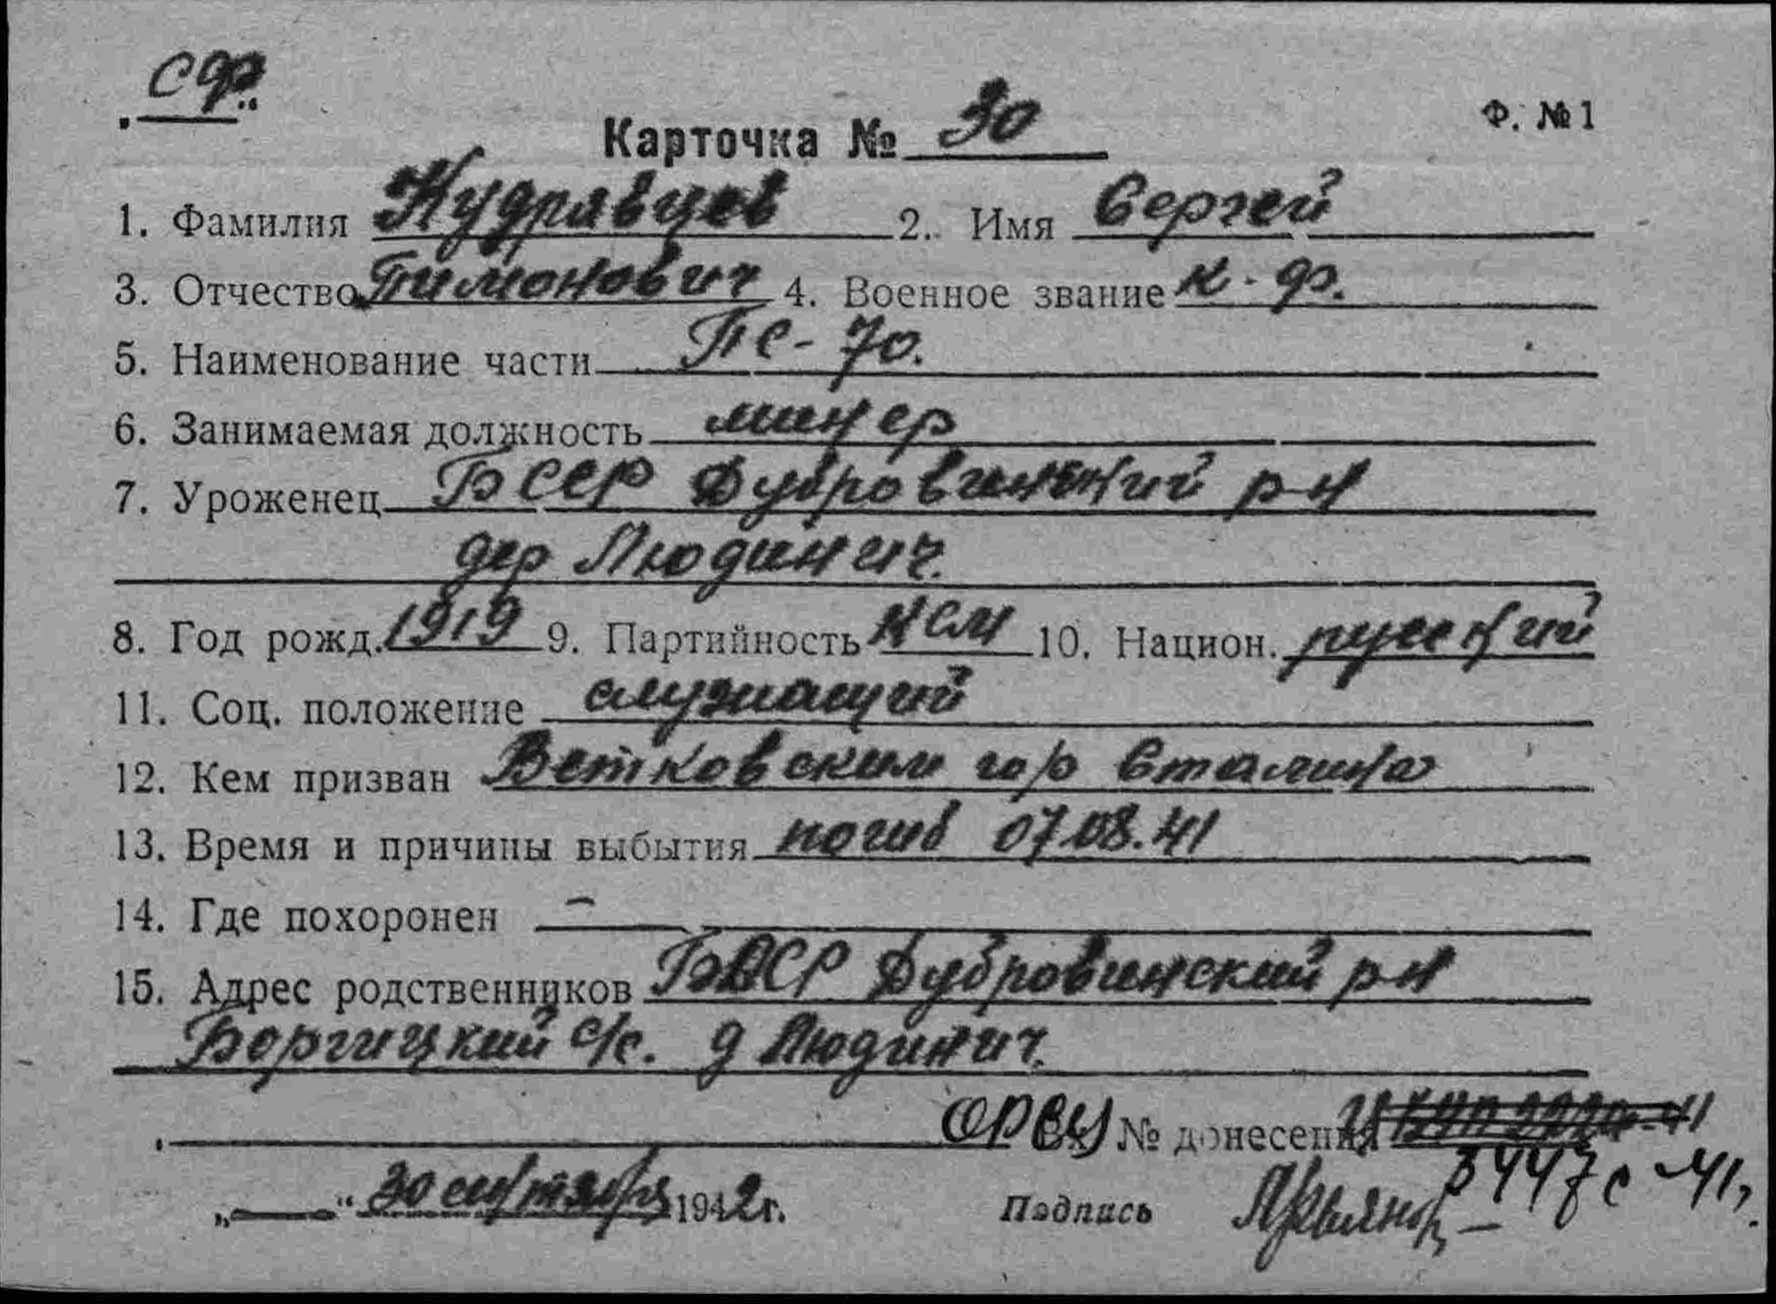 СФ.
Карточка № 30
Ф. № 1
1. Фамилия Кудравцев 2. Имя Сергей
3. Отчество Тимонович 4. Военное звание к-ф.
5. Наименование части ПС-70.
6. Занимаемая должность минер
7. Уроженец БССР Дубровинский р-н
дер Людинич.
8. Год рожд. 1919 9. Партийность КСМ 10. Национ. русский
11. Соц. положение служащий
12. Кем призван Ветковским г/о Сталина
13. Время и причины выбытия погиб 07.08.41
14. Где похоронен —
15. Адрес родственников БССР Дубровинский р-н
Боргицкий с/с. д Людинич.
ОРСУ № донесения
„ “ 30 сентября 1942 г. Подпись 8447с-41,